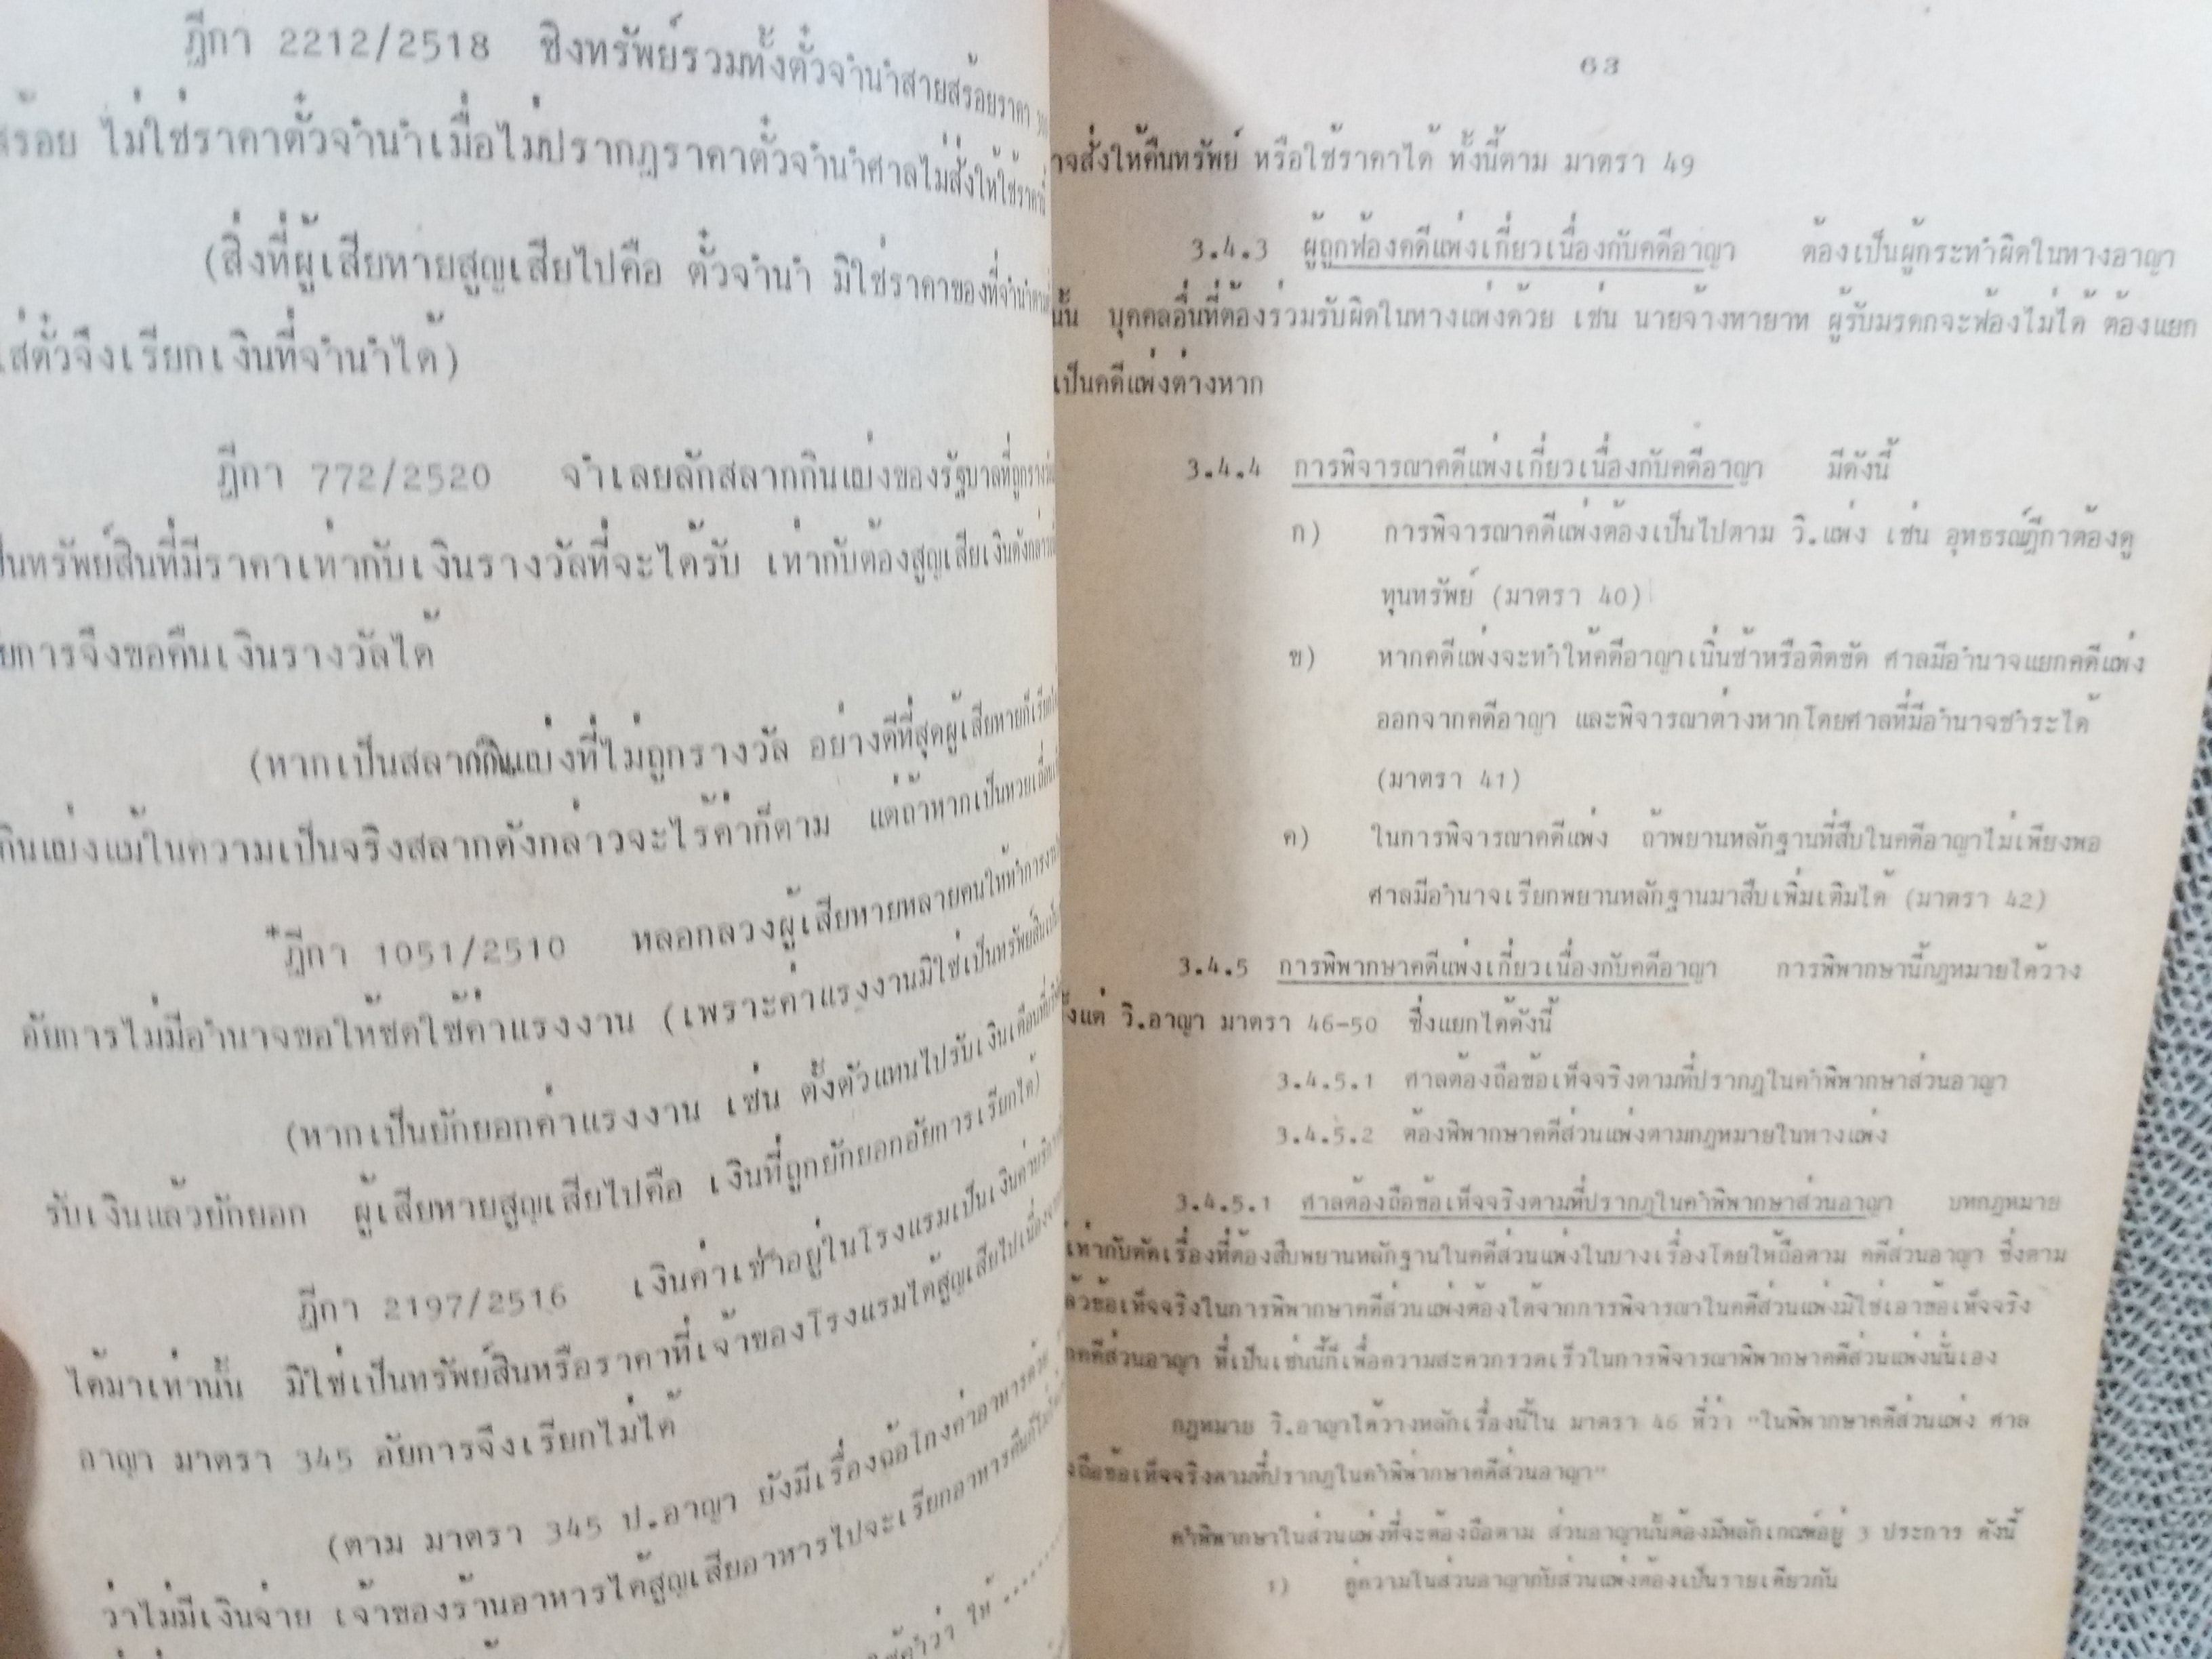 ฎีกา 2212/2518 ชิงทรัพย์รวมทั้งตั๋วจำนำสายสร้อยราคา
สร้อย ไม่ใช่ราคาตั๋วจำนำเมื่อไม่ปรากฏราคาตั๋วจำนำศาลไม่สั่งให้ใช้ราคา
(สิ่งที่ผู้เสียหายสูญเสียไปคือ ตั๋วจำนำ มิใช่ราคาของที่จำนำ
ใส่ตั๋วจึงเรียกเงินที่จำนำได้)
ฎีกา 772/2520 จำเลยลักสลากกินแบ่งของรัฐบาลที่ถูกรางวัล
เป็นทรัพย์สินที่มีราคาเท่ากับเงินรางวัลที่จะได้รับ เท่ากับต้องสูญเสียเงินดังกล่าว
ยการจึงขอคืนเงินรางวัลได้
(หากเป็นสลากกินแบ่งที่ไม่ถูกรางวัล อย่างดีที่สุดผู้เสียหายก็เรียก
กินแบ่งแม้ในความเป็นจริงสลากดังกล่าวจะไร้ค่าก็ตาม แต่ถ้าหากเป็นหวยเถื่อน
*ฎีกา 1051/2510 หลอกลวงผู้เสียหายหลายคนให้ทำการงาน
อัยการไม่มีอำนาจขอให้ชดใช้ค่าแรงงาน (เพราะค่าแรงงานมิใช่เป็นทรัพย์สิน
(หากเป็นยักยอกค่าแรงงาน เช่น ตั้งตัวแทนไปรับเงินเดือนที่
รับเงินแล้วยักยอก ผู้เสียหายสูญเสียไปคือ เงินที่ถูกยักยอกอัยการเรียกได้)
ฎีกา 2197/2516 เงินค่าเช่าอยู่ในโรงแรมเป็นเงินค่าบริการ
ได้มาเท่านั้น มิใช่เป็นทรัพย์สินหรือราคาที่เจ้าของโรงแรมได้สูญเสียไปเนื่องจาก
อาญา มาตรา 345 อัยการจึงเรียกไม่ได้
(ตาม มาตรา 345 ป.อาญา ยังมีเรื่องฉ้อโกงค่าอาหารด้วย
ว่าไม่มีเงินจ่าย เจ้าของร้านอาหารได้สูญเสียอาหารไปจะเรียกอาหารคืนก็ไม่
ใช้คำว่า ให้ ........
63
าจสั่งให้คืนทรัพย์ หรือใช้ราคาได้ ทั้งนี้ตาม มาตรา 49
3.4.3 ผู้ถูกฟ้องคดีแพ่งเกี่ยวเนื่องกับคดีอาญา ต้องเป็นผู้กระทำผิดในทางอาญา
นั้น บุคคลอื่นที่ต้องร่วมรับผิดในทางแพ่งด้วย เช่น นายจ้างทายาท ผู้รับมรดกจะฟ้องไม่ได้ ต้องแยก
เป็นคดีแพ่งต่างหาก
3.4.4 การพิจารณาคดีแพ่งเกี่ยวเนื่องกับคดีอาญา มีดังนี้
ก) การพิจารณาคดีแพ่งต้องเป็นไปตาม วิ.แพ่ง เช่น อุทธรณ์ฎีกาต้องดู
ทุนทรัพย์ (มาตรา 40)
ข) หากคดีแพ่งจะทำให้คดีอาญาเนิ่นช้าหรือติดขัด ศาลมีอำนาจแยกคดีแพ่ง
ออกจากคดีอาญา และพิจารณาต่างหากโดยศาลที่มีอำนาจชำระได้
(มาตรา 41)
ค) ในการพิจารณาคดีแพ่ง ถ้าพยานหลักฐานที่สืบในคดีอาญาไม่เพียงพอ
ศาลมีอำนาจเรียกพยานหลักฐานมาสืบเพิ่มเติมได้ (มาตรา 42)
3.4.5 การพิพากษาคดีแพ่งเกี่ยวเนื่องกับคดีอาญา การพิพากษานี้กฎหมายได้วาง
ั้งแต่ วิ.อาญา มาตรา 46-50 ซึ่งแยกได้ดังนี้
3.4.5.1 ศาลต้องถือข้อเท็จจริงตามที่ปรากฏในคำพิพากษาส่วนอาญา
3.4.5.2 ต้องพิพากษาคดีส่วนแพ่งตามกฎหมายในทางแพ่ง
3.4.5.1 ศาลต้องถือข้อเท็จจริงตามที่ปรากฏในคำพิพากษาส่วนอาญา บทกฎหมาย
เท่ากับตัดเรื่องที่ต้องสืบพยานหลักฐานในคดีส่วนแพ่งในบางเรื่องโดยให้ถือตาม คดีส่วนอาญา ซึ่งตาม
ล้วข้อเท็จจริงในการพิพากษาคดีส่วนแพ่งต้องได้จากการพิจารณาในคดีส่วนแพ่งมิใช่เอาข้อเท็จจริง
กคดีส่วนอาญา ที่เป็นเช่นนี้ก็เพื่อความสะดวกรวดเร็วในการพิจารณาพิพากษาคดีส่วนแพ่งนั่นเอง
กฎหมาย วิ.อาญาได้วางหลักเรื่องนี้ใน มาตรา 46 ที่ว่า "ในพิพากษาคดีส่วนแพ่ง ศาล
งถือข้อเท็จจริงตามที่ปรากฏในคำพิพากษาคดีส่วนอาญา"
คำพิพากษาในส่วนแพ่งที่จะต้องถือตาม ส่วนอาญานั้นต้องมีหลักเกณฑ์อยู่ 3 ประการ ดังนี้
1) คู่ความในส่วนอาญากับส่วนแพ่งต้องเป็นรายเดียวกัน